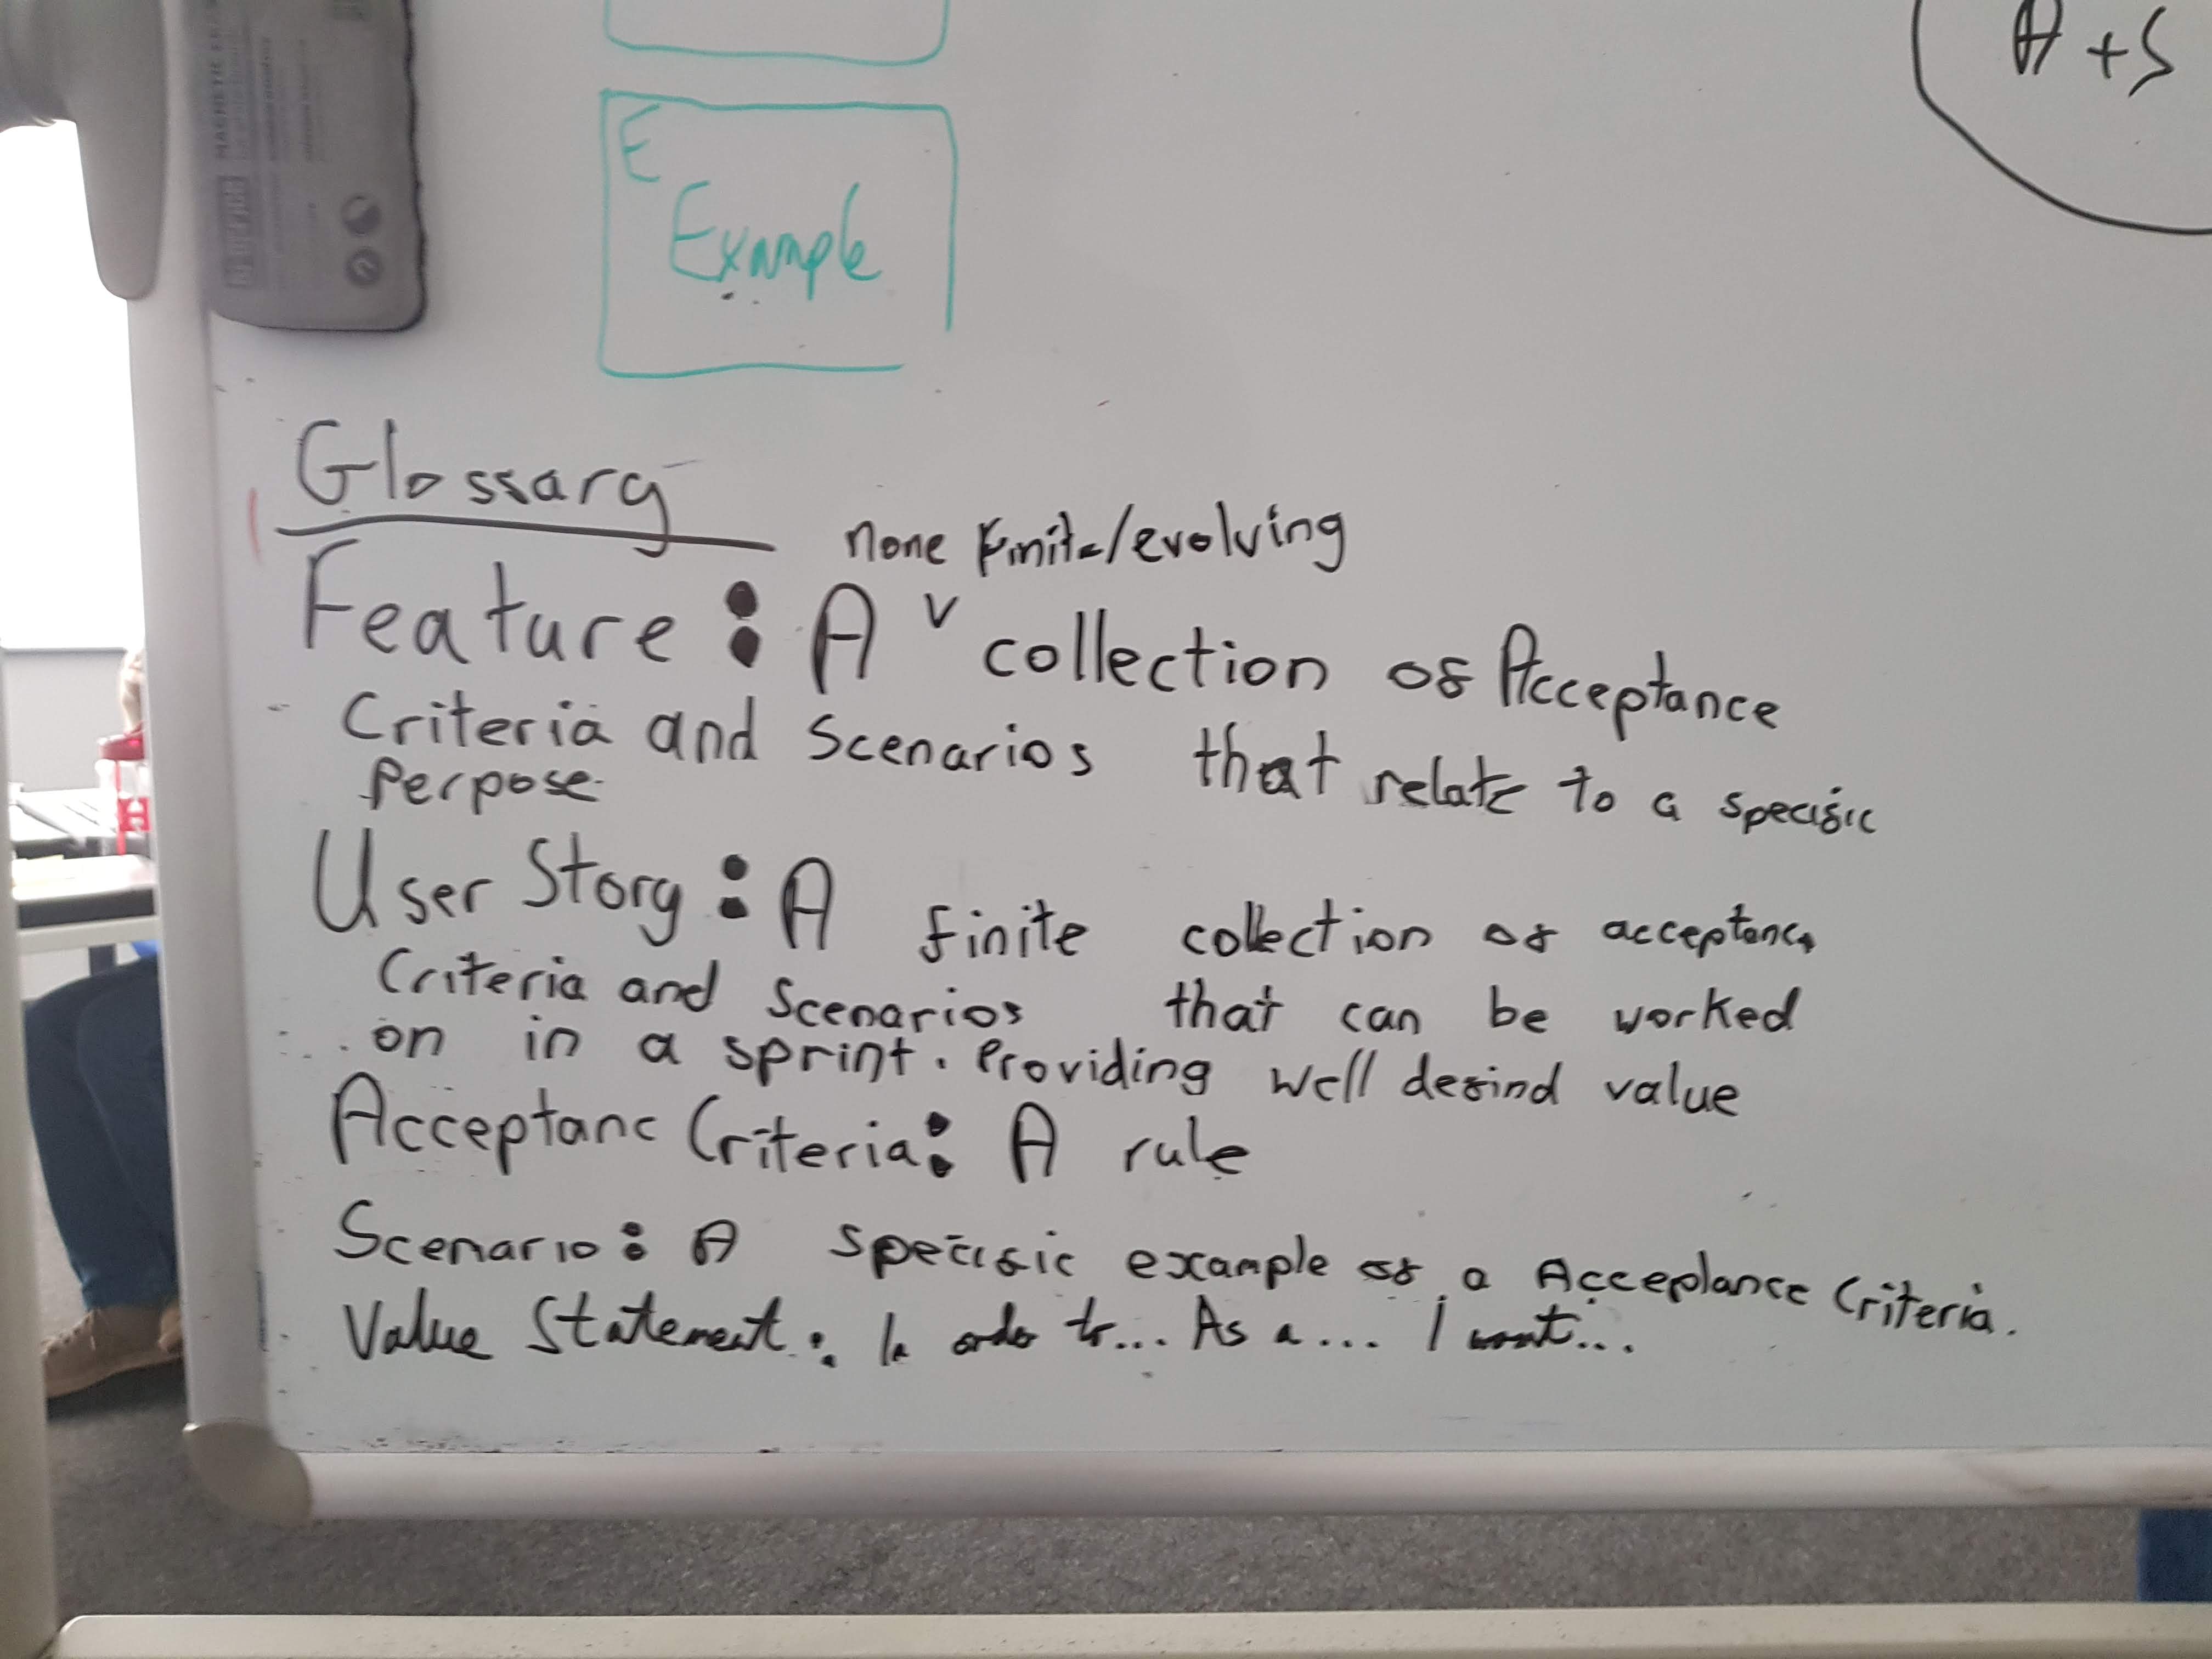 A + S
E
Example
Glossary
none Finite/evolving
Feature : A v collection of Acceptance
Criteria and Scenarios that relate to a specific
Perpose.
User Story : A finite collection of acceptance
Criteria and Scenarios that can be worked
on in a sprint. Providing well defind value
Acceptanc Criteria : A rule
Scenario : A specific example of a Acceptance Criteria.
Value Statement : In order to... As a.... I want...